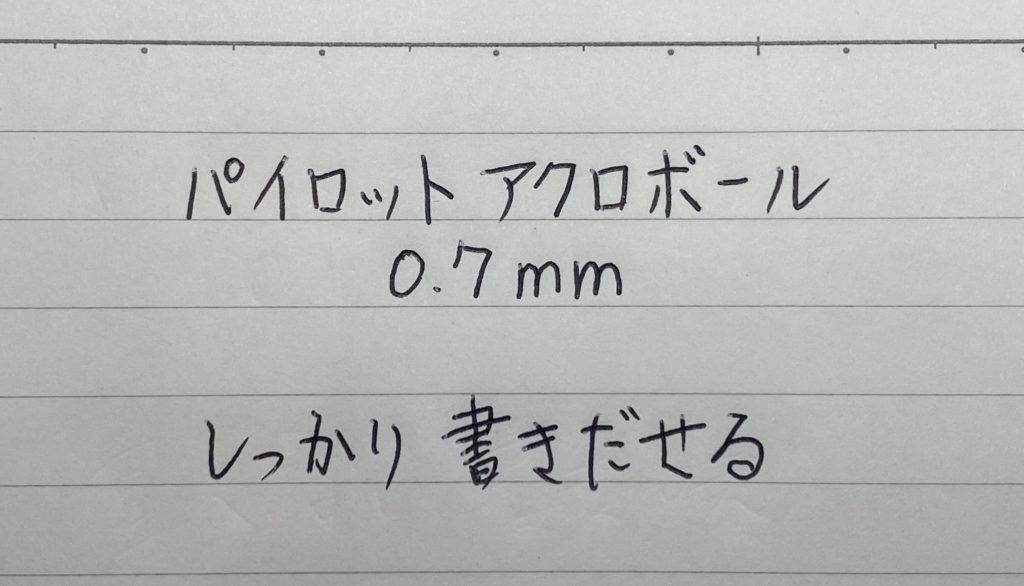 パイロット アクロボール
0.7mm
しっかり 書きだせる